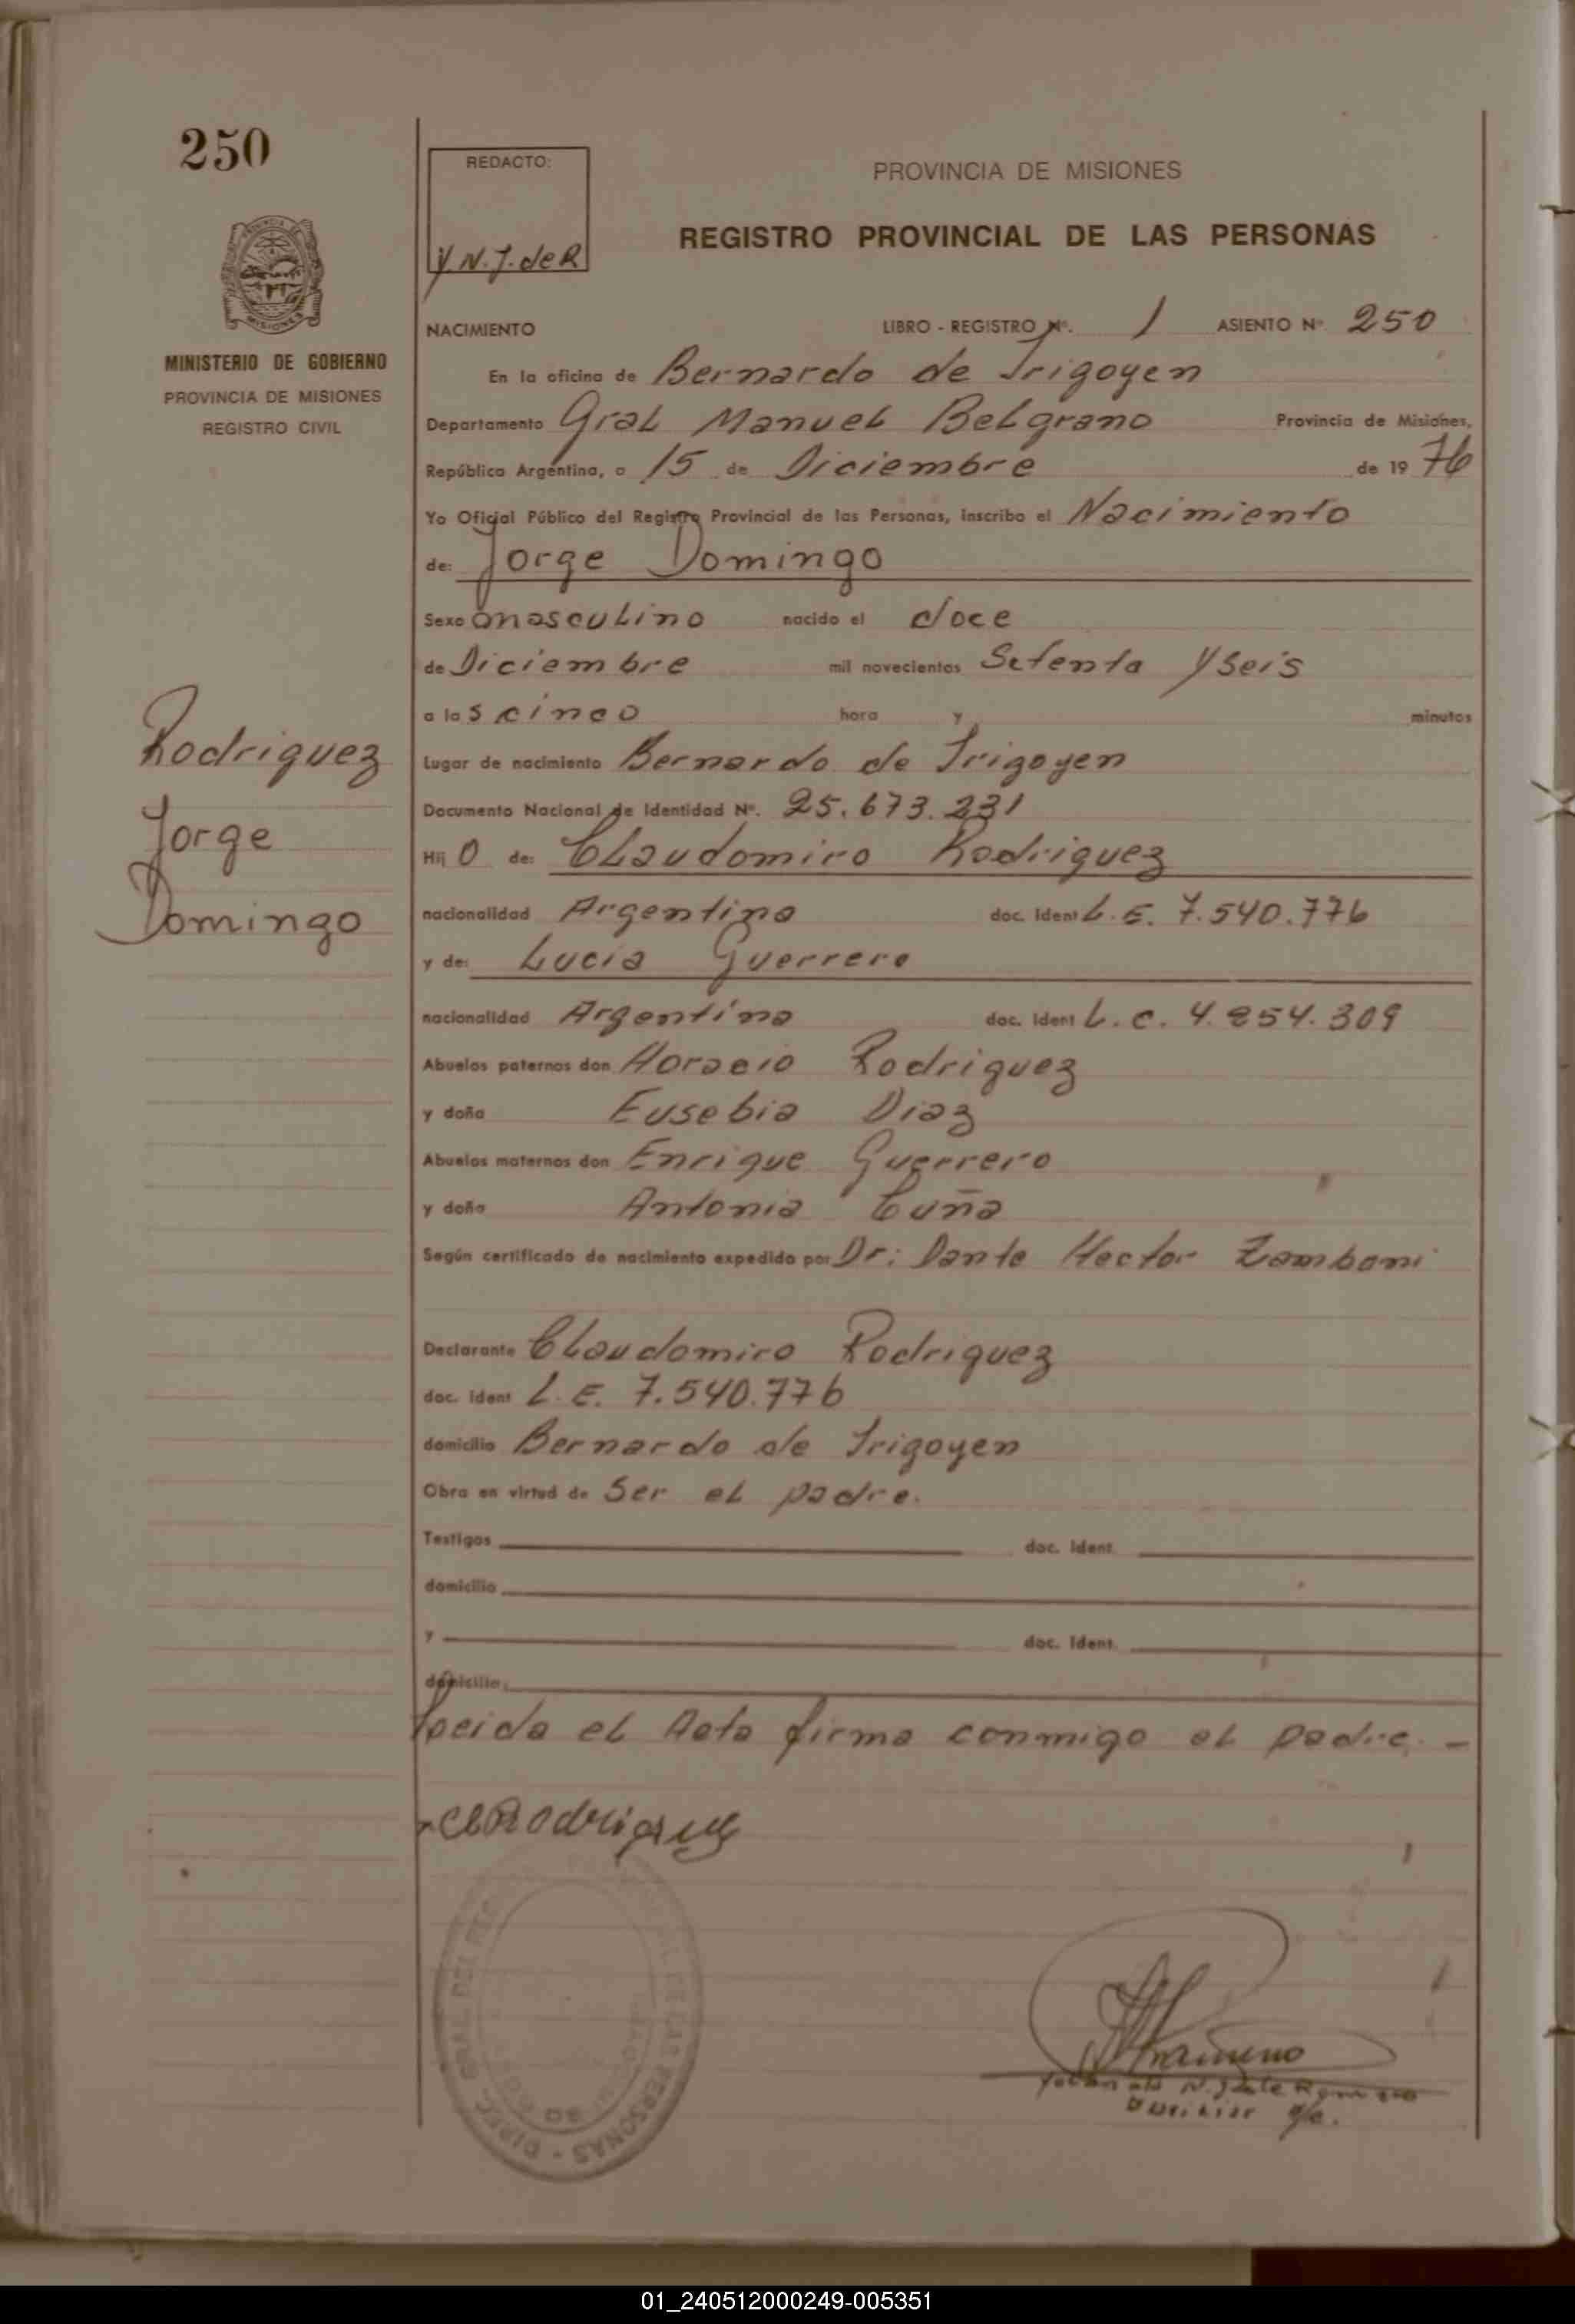 250
REDACTO:
Y.N.J. de R
PROVINCIA DE MISIONES
REGISTRO PROVINCIAL DE LAS PERSONAS
MISIONES
MINISTERIO DE GOBIERNO
PROVINCIA DE MISIONES
REGISTRO CIVIL
NACIMIENTO LIBRO - REGISTRO Nº. 1 ASIENTO Nº 250
En la oficina de Bernardo de Irigoyen
Departamento Gral Manuel Belgrano Provincia de Misiones,
República Argentina, a 15 de Diciembre de 1976
Yo Oficial Público del Registro Provincial de las Personas, inscribo el Nacimiento
de: Jorge Domingo
Sexo masculino nacido el doce
de Diciembre mil novecientos Setenta y seis
a las cinco hora y minutos
Lugar de nacimiento Bernardo de Irigoyen
Documento Nacional de Identidad Nº. 25.673.231
Hijo de: Claudomiro Rodriguez
nacionalidad Argentina doc. Ident L.E. 7.540.776
y de: Lucia Guerrero
nacionalidad Argentina doc. Ident L.C. 4.254.309
Abuelos paternos don Horacio Rodriguez
y doña Eusebia Diaz
Abuelos maternos don Enrique Guerrero
y doña Antonia Cuña
Según certificado de nacimiento expedido por Dr: Dante Hector Zamboni
Declarante Claudomiro Rodriguez
doc. Ident L.E. 7.540.776
domicilio Bernardo de Irigoyen
Obra en virtud de Ser el padre.
Testigos doc. Ident.
domicilio
y doc. Ident.
domicilio
Leida el Acta firma conmigo el padre. -
Rodriguez
Jorge
Domingo
Cl Rodriguez
DE LAS PERSONAS - DIREC. GRAL DEL REG
01_240512000249-005351